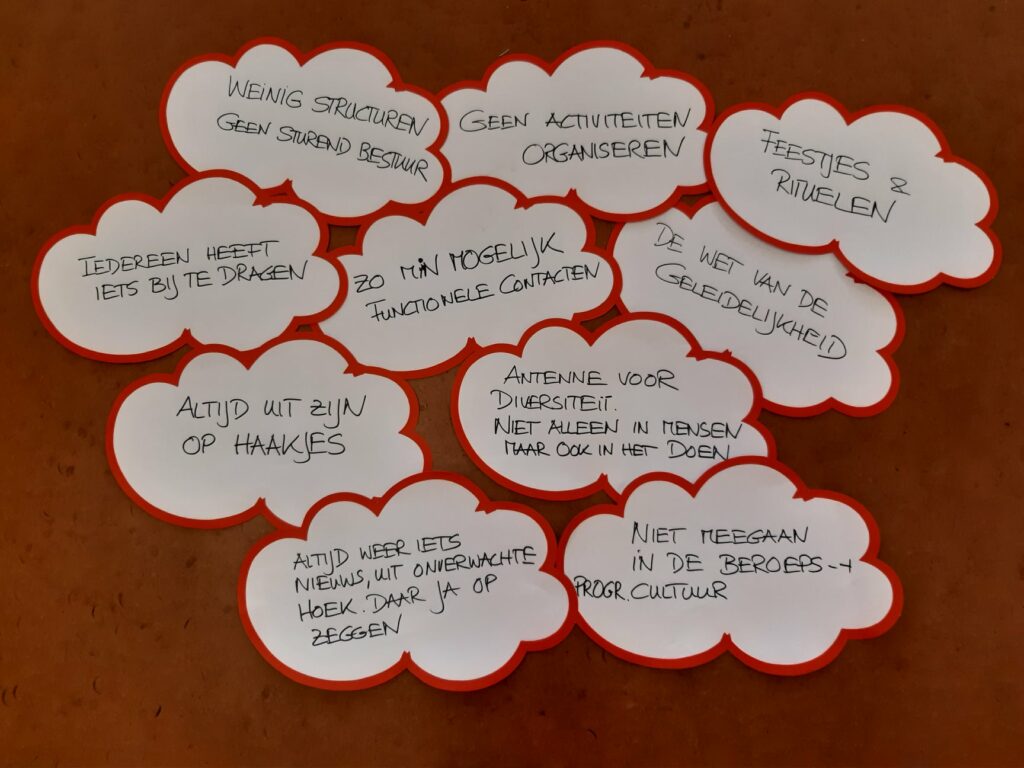 WEINIG STRUCTUREN
GEEN STUREND BESTUUR
GEEN ACTIVITEITEN
ORGANISEREN
FEESTJES &
RITUELEN
IEDEREEN HEEFT
IETS BIJ TE DRAGEN
ZO MIN MOGELIJK
FUNCTIONELE CONTACTEN
DE WET VAN DE
GELEIDELIJKHEID
ALTIJD UIT ZIJN
OP HAAKJES
ANTENNE VOOR
DIVERSITEIT.
NIET ALLEEN IN MENSEN
MAAR OOK IN HET DOEN
ALTIJD WEER IETS
NIEUWS, UIT ONVERWACHTE
HOEK. DAAR JA OP
ZEGGEN
NIET MEEGAAN
IN DE BEROEPS-+
PROGR. CULTUUR